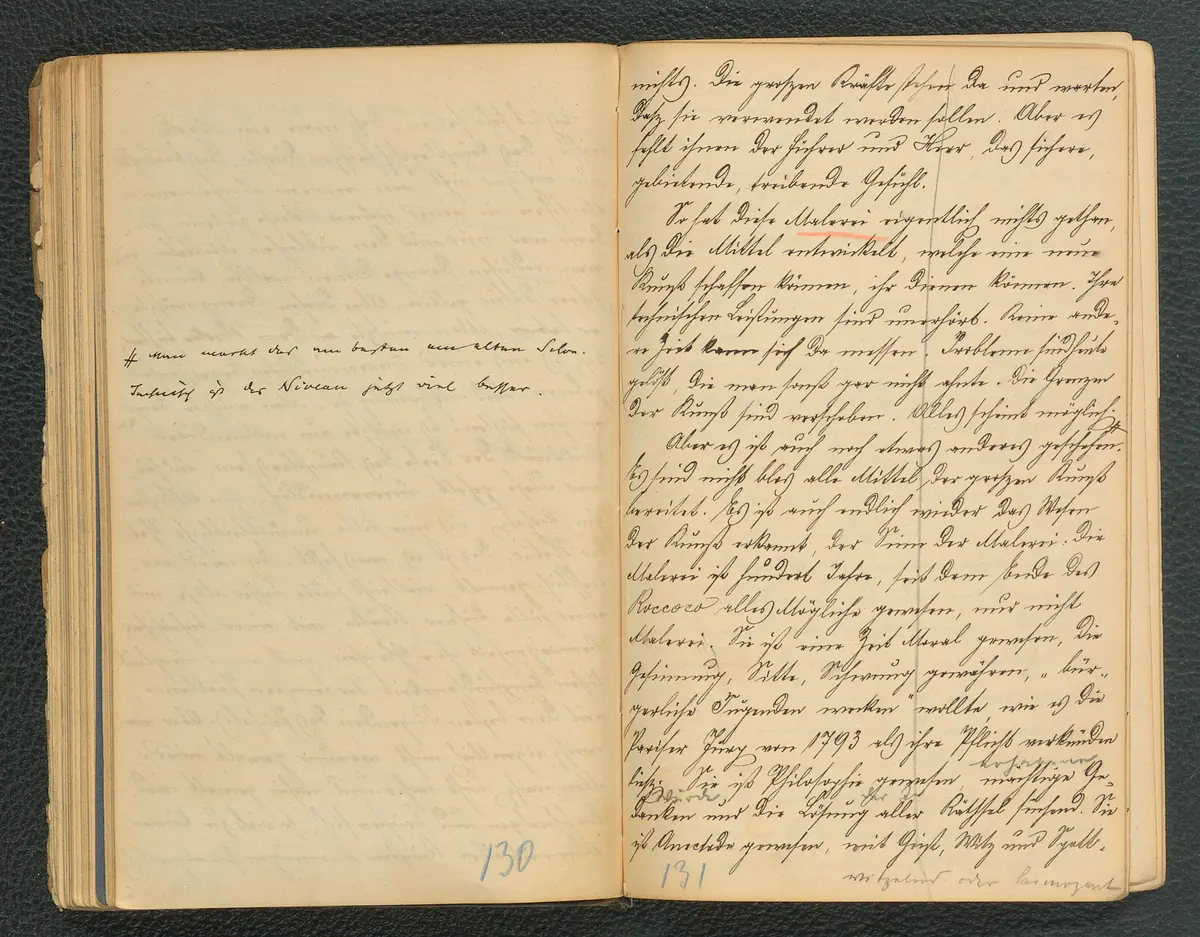 # Man merkt das am besten am alten Salon.
Technisch ist das Niveau jetzt viel besser.
130
nichts. Die groszen Kräfte stehen da und warten,
dasz sie verwendet werden sollen. Aber es
fehlt ihnen der Führer und Herr, das sichere,
gebietende, treibende Gefühl.
So hat diese Malerei eigentlich nichts gethan,
als die Mittel entwickelt, welche eine neue
Kunst schaffen können, ihr dienen können. Ihre
technischen Leistungen sind unerhört. Keine ande-
re Zeit kann sich da messen. Probleme sind heute
gelöst, die man sonst gar nicht ahnte. Die Grenzen
der Kunst sind verschoben. Alles scheint möglich. #
Aber es ist auch noch etwas anderes geschehen.
Es sind nicht blos alle Mittel der groszen Kunst
bereitet. Es ist auch endlich wieder das Wesen
der Kunst erkannt, der Sinn der Malerei. Die
Malerei ist hundert Jahre, seit dem Ende des
Roccoco alles Mögliche gewesen, nur nicht
Malerei. Sie ist eine Zeit Moral gewesen, die
Gesinnung, Sitte, Schwung gewähren, „bür-
gerliche Tugenden wecken" wollte, wie es die
Pariser Jury von 1793 als ihre Pflicht verkünden
liesz. Sie ist Philosophie gewesen, mächtige Ge-
erhabene
würde
danken und die Lösung aller Räthsel suchend. Sie
ist Anecdode gewesen, mit Geist, Witz und Spott.
witzelnd oder larmoyant
131